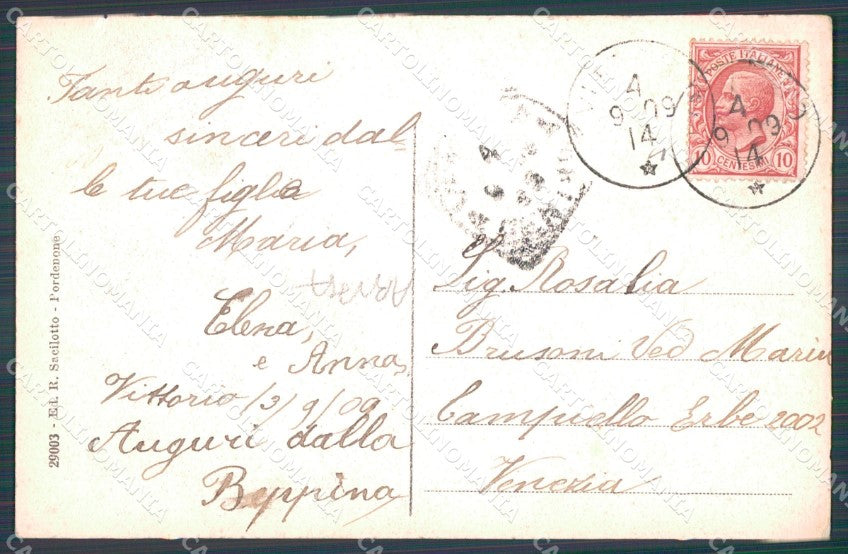 Tanti auguri
sinceri dal-
le tue figlie
Maria,
Elena,
e Anna,
Vittorio 3/9/09
Auguri dalla
Beppina
29003 - Ed. R. Sacilotto - Pordenone
POSTE ITALIANE
10 CENTESIMI 10
4
9 09
14
4
9 09
14
Sig. Rosalia
Brusoni Ved Marin
Campiello Erbe 2002
Venezia
CARTOLINOMANIA